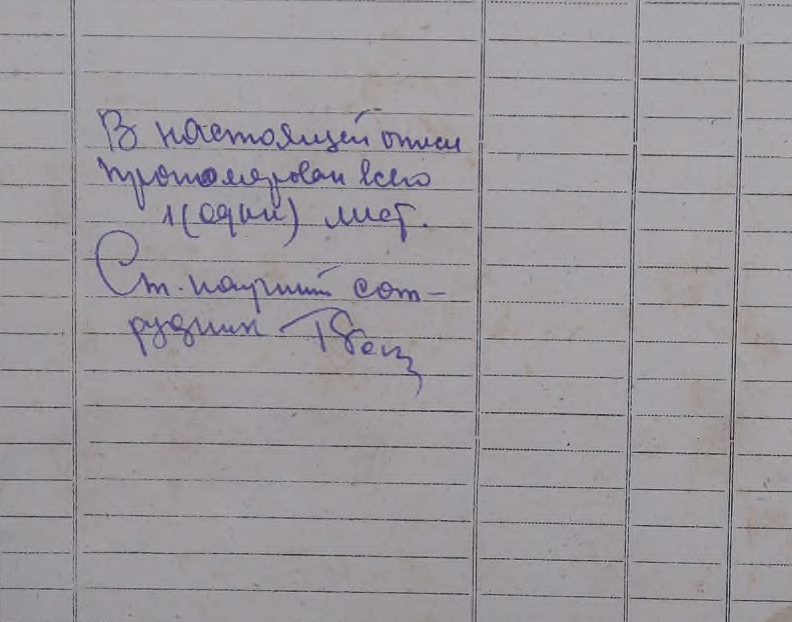 В настоящей описи
пронумерован всего
1 (один) лист.
Ст. научный сот-
рудник